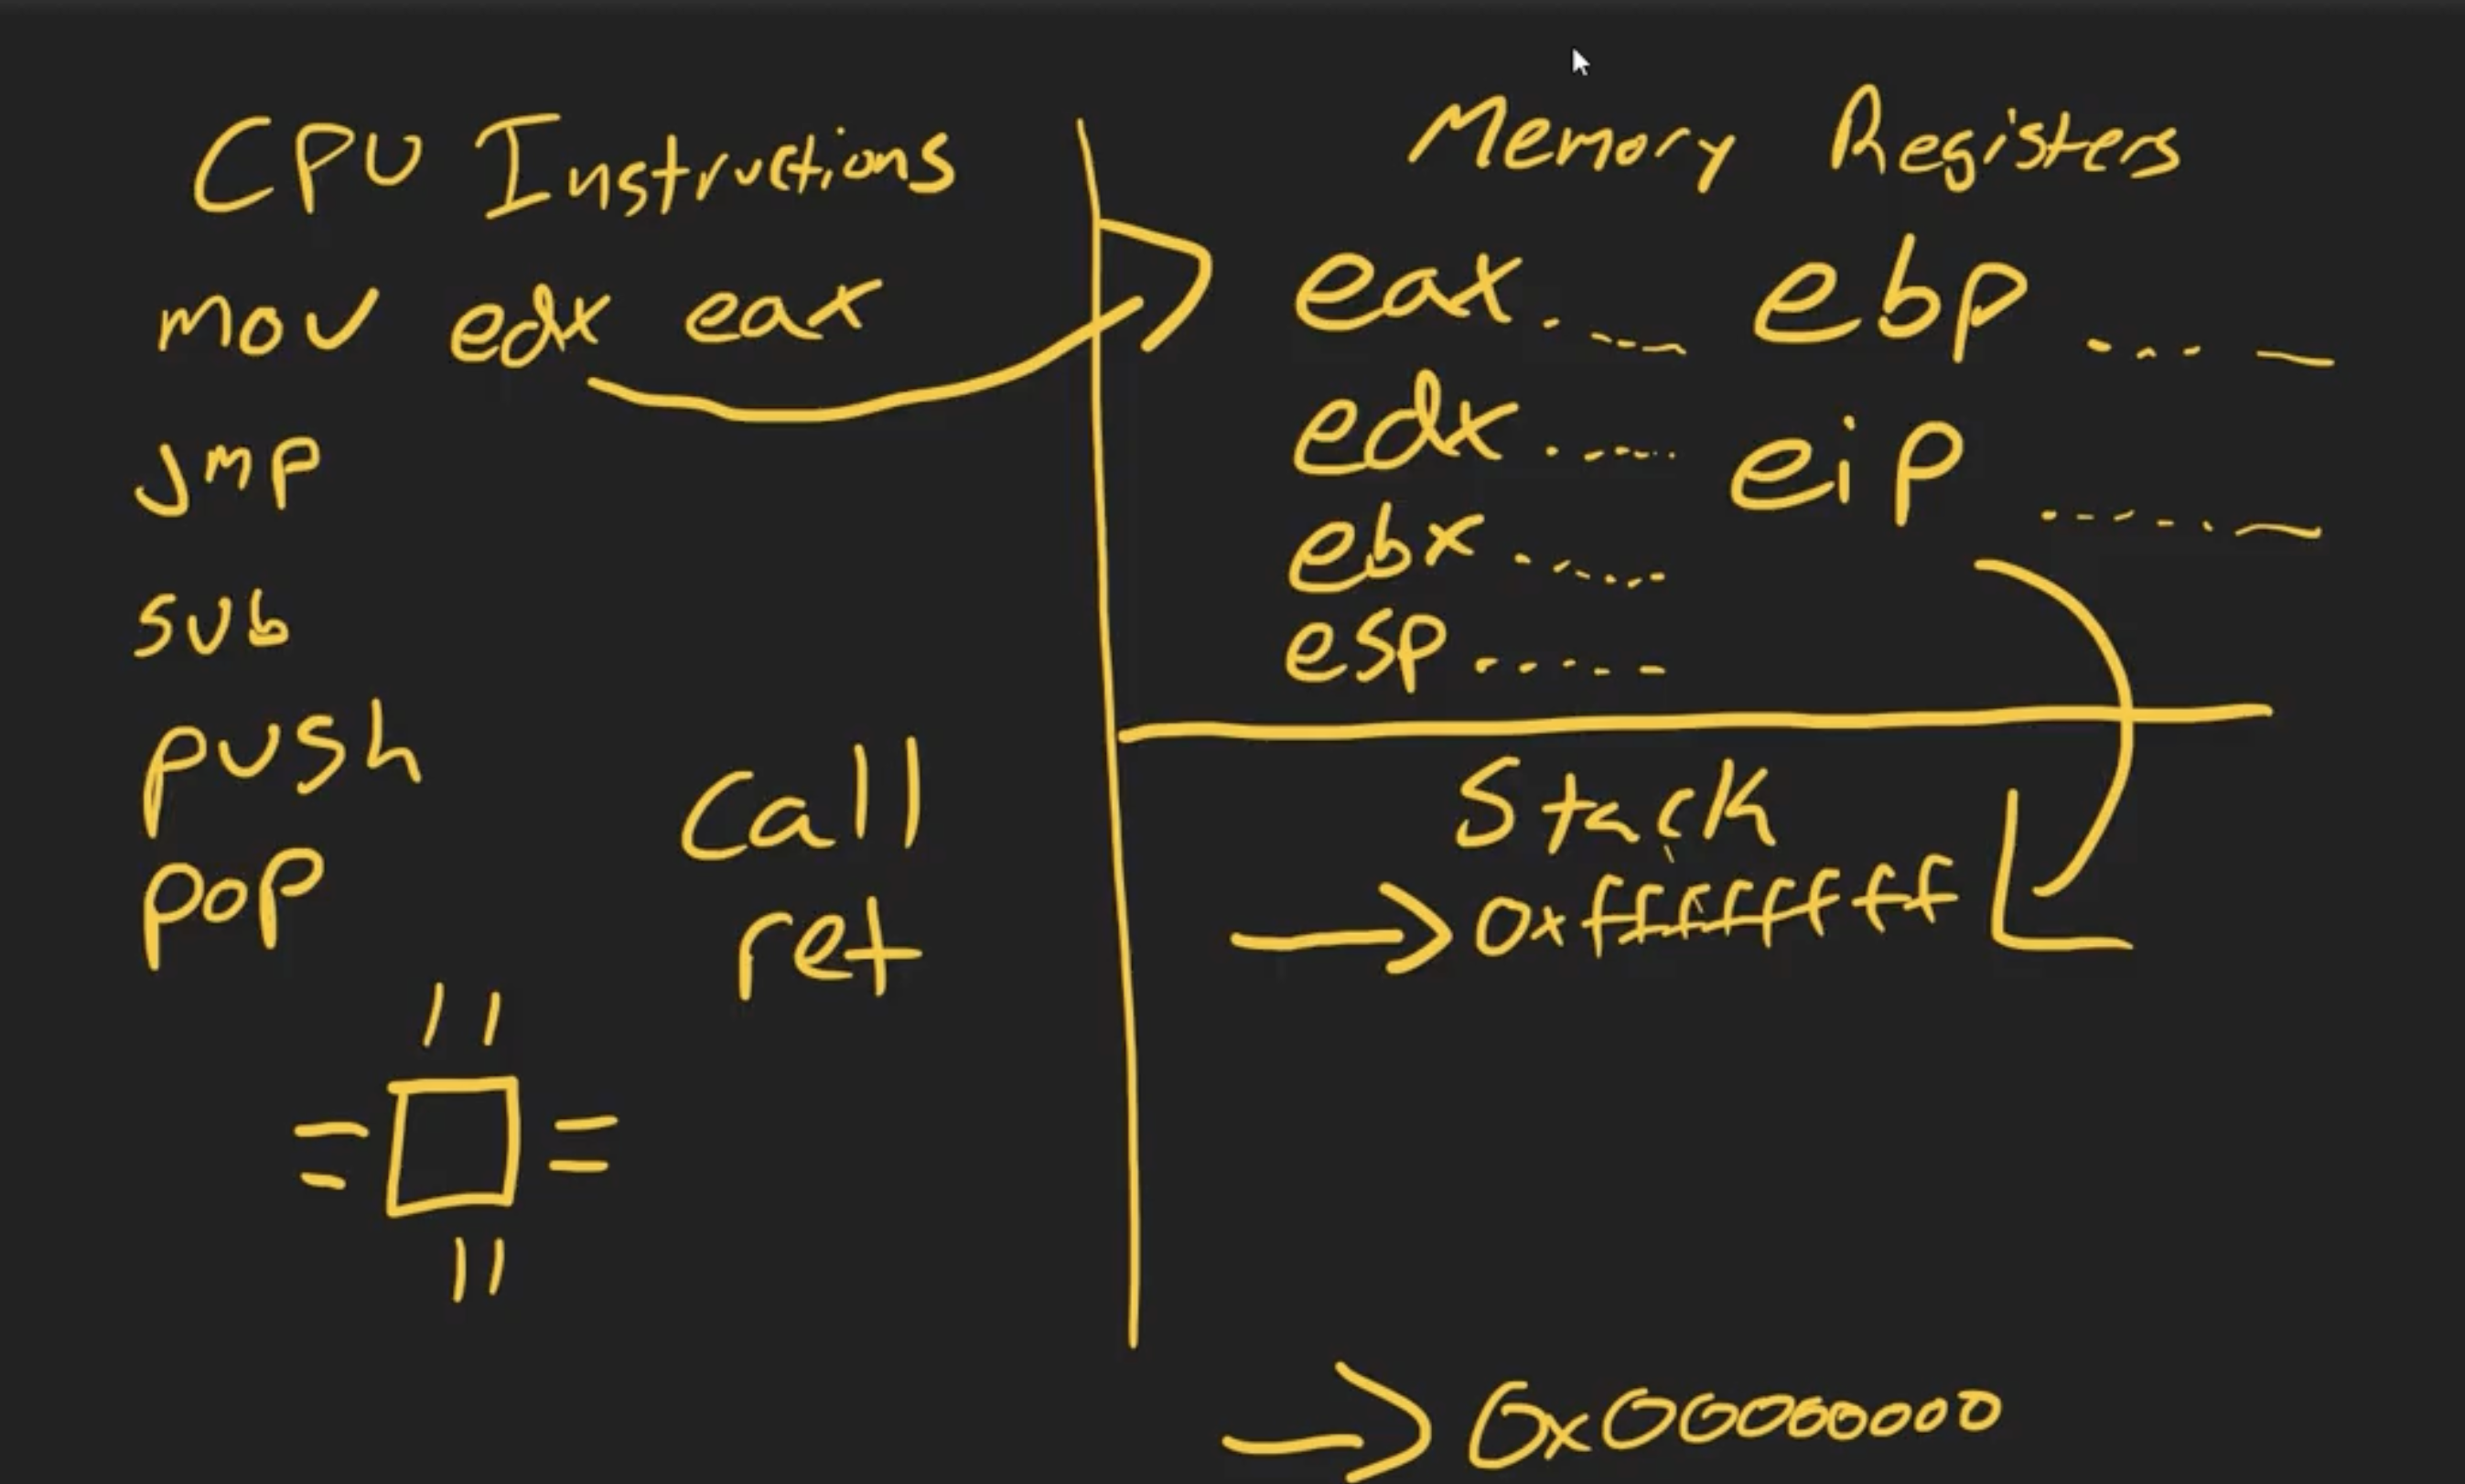 CPU Instructions
mov edx eax
jmp
sub
push
pop
call
ret
Memory Registers
eax..... ebp ... _
edx..... eip ....._
ebx......
esp.....
Stack
0xffffffff
0x00000000